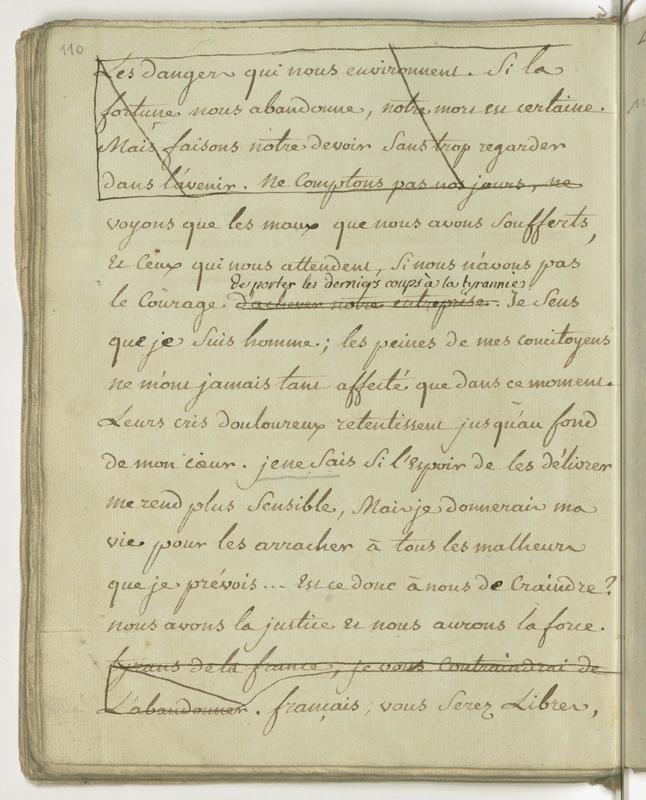 110
Les dangers qui nous environnent. Si la
fortune nous abandonne, notre mort est certaine.
Mais faisons nôtre devoir sans trop regarder
dans l'avenir. Ne Comptons pas nos jours, ne
voyons que les maux que nous avons soufferts,
Et Ceux qui nous attendent, Si nous n'avons pas
de porter les derniers coups à la tyrannie.
le Courage d'achever notre entreprise. Je Sens
que je suis homme.; les peines de mes concitoyens
ne m'ont jamais tant affecté que dans ce moment.
Leurs cris douloureux retentissent jusqu'au fond
de mon cœur. je ne Sais Si l'Espoir de les délivrer
me rend plus Sensible, Mais je donnerais ma
vie pour les arracher à tous les malheurs
que je prévois... Est ce donc à nous de Craindre?
nous avons la justice Et nous aurons la force.
tyrans de la france, je vous Contraindrai de
L'abandonner. français, vous Serez Libres,